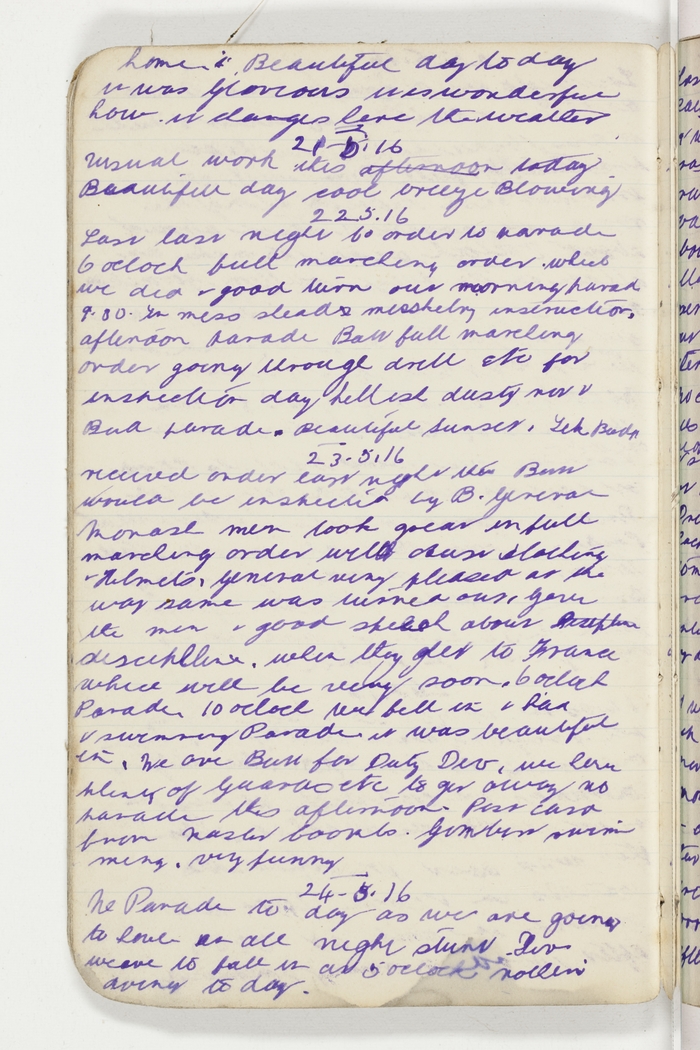 home. Beautiful day to day
it was Glorious it is wonderful
how it changes here the weather
21-5.16
usual work this afternoon today
Beautiful day cool breeze Blowing
22.5.16
Last last night to order to parade
6 oclock full marching order which
we did & good turn out morning parad
9.30. In mess sheads musketry instruction,
afternoon parade Batt full marching
order going through drill etc for
inspection day hellish dusty not a
Bad parade. Beautiful sunset.
23.5.16
recieved order last night this Batt
would be inspected by B. General
Monash men took great in full
marching order with
& Helmets, General very pleased at the
way same was turned out, gave
the men a good speech about
discipline, when they get to France
which will be very soon. 6 oclock
Parade 10 oclock we fell in & had
a swimming Parade it was beautiful
in. We are Batt for Duty Dev, we have
plenty of Guards etc to get away no
parade this afternoon. Post card
from swim
ming. very funny
24-5.16
No Parade to day as we are going
to have an all night stunt Div
we are to fall in at 5 oclock nothing
doing to day.